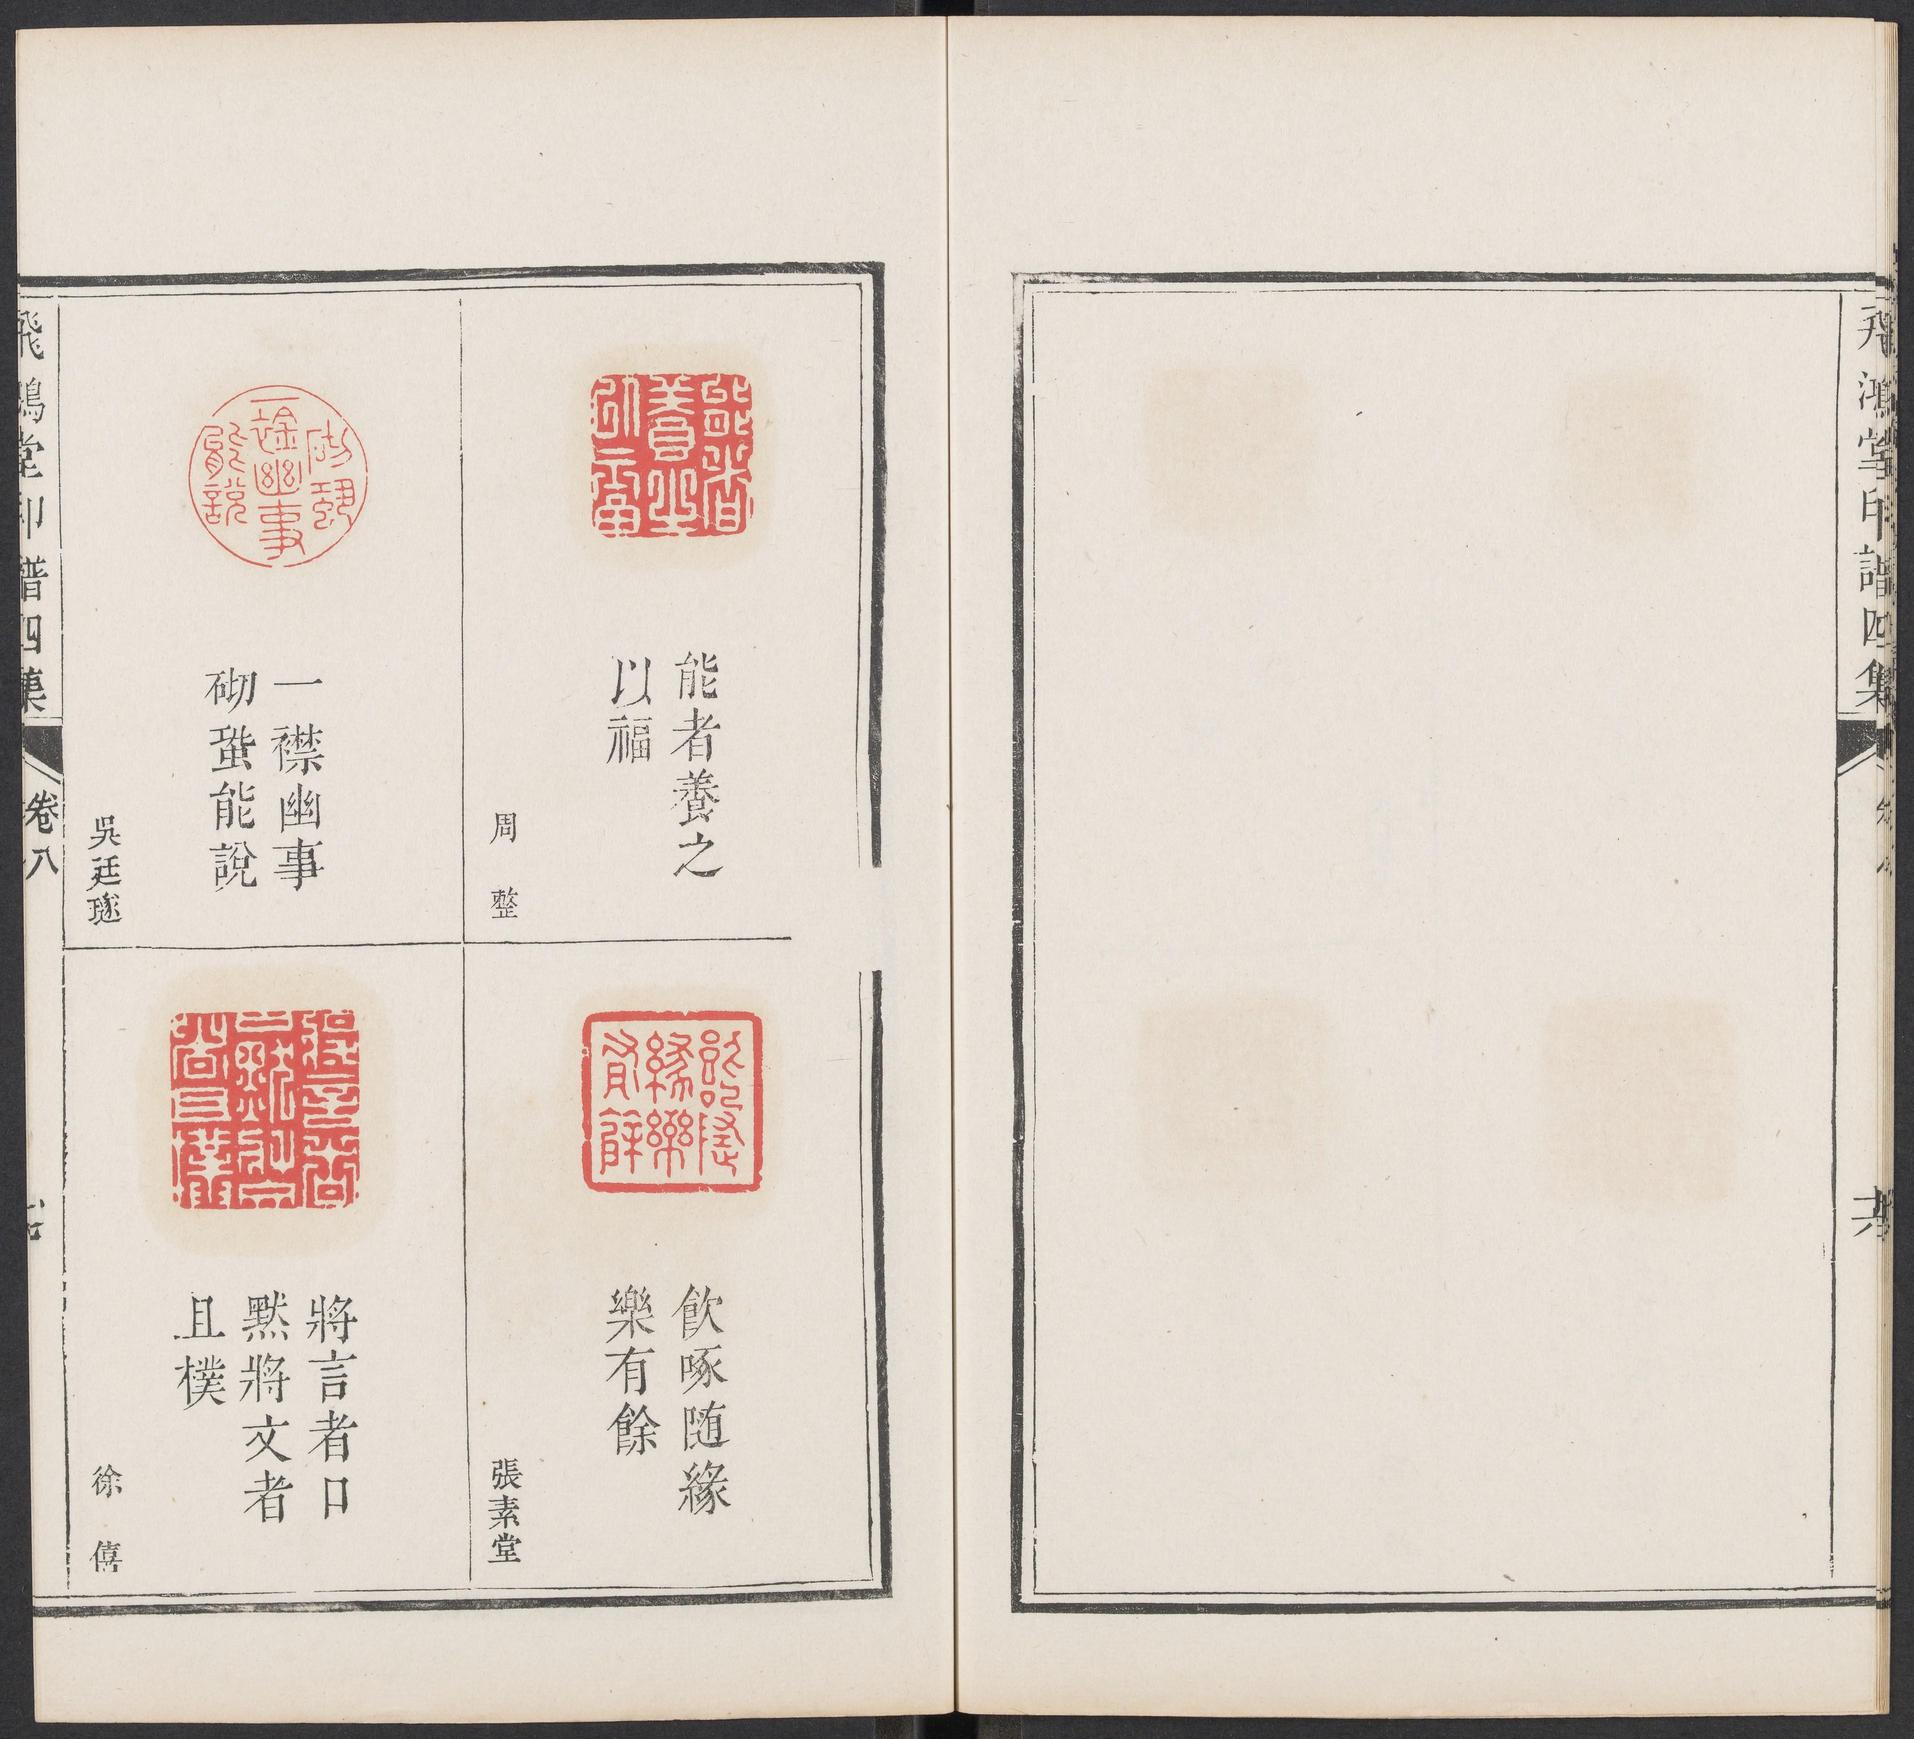 飛鴻堂印譜四集
能者養之
以福
周整
飲啄随緣
樂有餘
張素堂
一襟幽事
砌蛩能說
吳廷璲
將言者口
默將文者
且樸
徐僖
飛鴻堂印譜四集
卷八